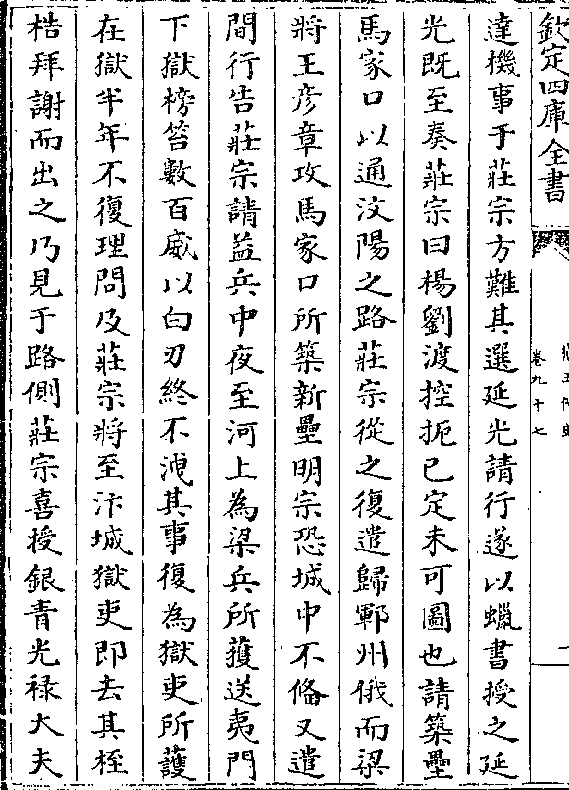 欽定四庫全書
舊五代史
卷九十七
一
達機事于莊宗方難其選延光請行遂以蠟書授之延
光既至奏莊宗曰楊劉渡控扼已定未可圖也請築壘
馬家口以通汶陽之路莊宗從之復遣歸鄆州俄而梁
將王彦章攻馬家口所築新壘明宗恐城中不偹又遣
間行告莊宗請益兵中夜至河上為梁兵所獲送夷門
下獄榜笞數百威以白刃終不洩其事復為獄吏所護
在獄半年不復理問及莊宗將至汴城獄吏即去其桎
梏拜謝而出之乃見于路側莊宗喜授銀青光禄大夫